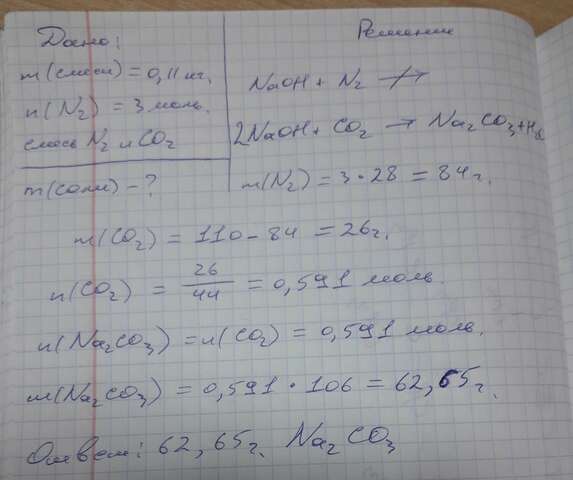 Дано:
m(смеси) = 0,11 кг.
n(N2) = 3 моль.
смесь N2 и CO2
m(соли) - ?
Решение
NaOH + N2 ↛
2NaOH + CO2 → Na2CO3 + H2
m(N2) = 3 · 28 = 84 г.
m(CO2) = 110 - 84 = 26 г.
n(CO2) = 26/44 = 0,591 моль.
n(Na2CO3) = n(CO2) = 0,591 моль.
m(Na2CO3) = 0,591 · 106 = 62,65 г.
Ответ: 62,65 г. Na2CO3